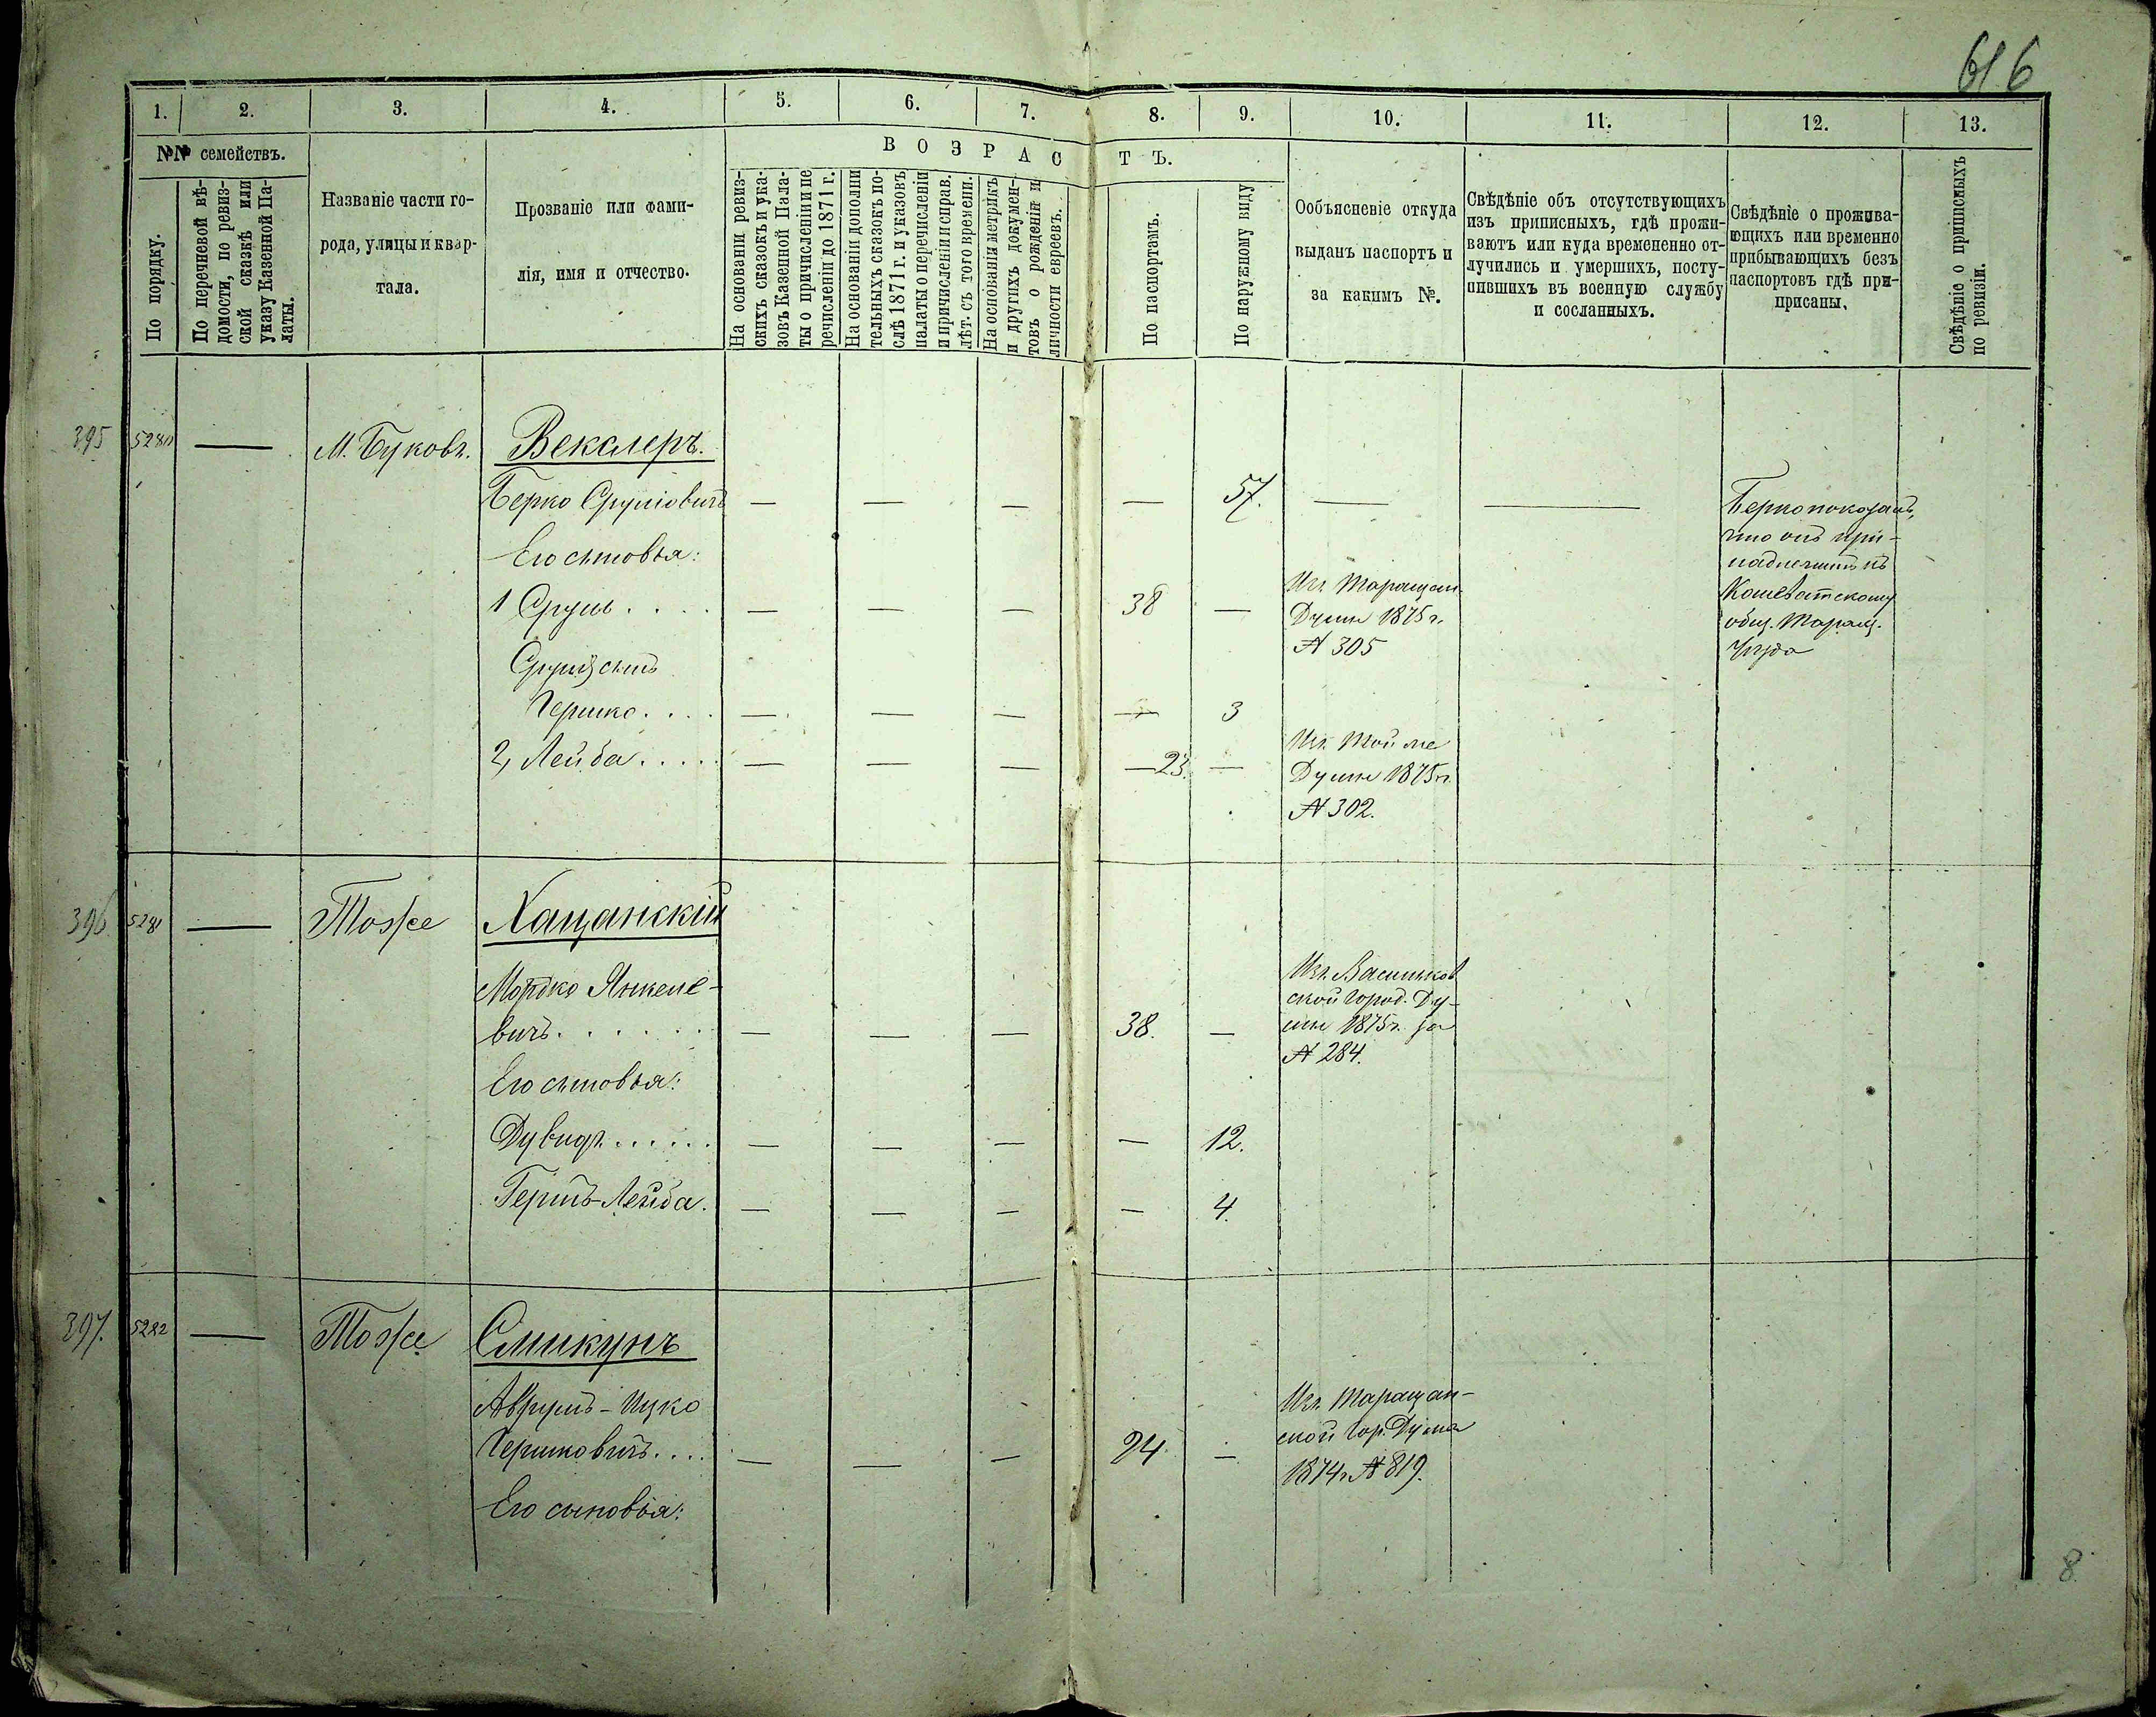 616
1. 2. 3. 4. 5. 6. 7. 8. 9. 10. 11. 12. 13.
№№ семействъ.
По порядку.
По перечневой вѣ-
домости, по ревиз-
ской сказкѣ или
указу Казенной Па-
латы.
Названіе части го-
рода, улицы и квар-
тала.
Прозваніе или фами-
лія, имя и отчество.
ВОЗРАСТЪ.
На основаніи ревиз-
скихъ сказокъ и ука-
зовъ Казенной Пала-
ты о причисленіи и пе
речисленіи до 1871 г.
На основаніи дополни
тельныхъ сказокъ по-
слѣ 1871 г. и указовъ
палаты о перечисленіи
и причисленіи и справ.
лѣт. съ того времени.
На основаніи метрикъ
и другихъ докумен-
товъ о рожденіи и
личности евреевъ.
По паспортамъ.
По наружному виду
Ообъясненіе откуда
выданъ паспортъ и
за какимъ №.
Свѣдѣніе объ отсутствующихъ
изъ приписныхъ, гдѣ прожи-
ваютъ или куда временно от-
лучились и умершихъ, посту-
пившихъ въ военную службу
и сосланныхъ.
Свѣдѣніе о прожива-
ющихъ или временно
прибывающихъ безъ
паспортовъ гдѣ при-
присаны.
Свѣдѣніе о приписныхъ
по ревизіи.
395 5280 — М. Буковъ. Векслеръ.
Берко Сруліовичъ — — — — 57. — —
Берко показалъ,
что онъ при-
надлежитъ къ
Кошеватскому
общ. Таращ.
Уѣзда
Его сыновья:
1 Сруль.... — — — 38 —
Изъ Таращан.
Думы 1875 г.
№ 305
Сруля сынъ
Гершко.... — — — — 3
2, Лейба..... — — — —23. —
Изъ той же
Думы 1875 г.
№ 302.
396 5281 — Тоже Хащанскій
Мордко Янкеле-
вичъ....... — — — 38. —
Изъ Васильков
ской город. Ду-
мы 1875 г. за
№ 284.
Его сыновья:
Дувидъ...... — — — — 12.
Гершъ-Лейба. — — — — 4.
397. 5282 — Тоже Сликунъ
Аврумъ-Ицко
Гершковичъ.... — — — 24. —
Изъ Таращан-
ской Гор. Думы
1874 г. № 819.
Его сыновья:
8